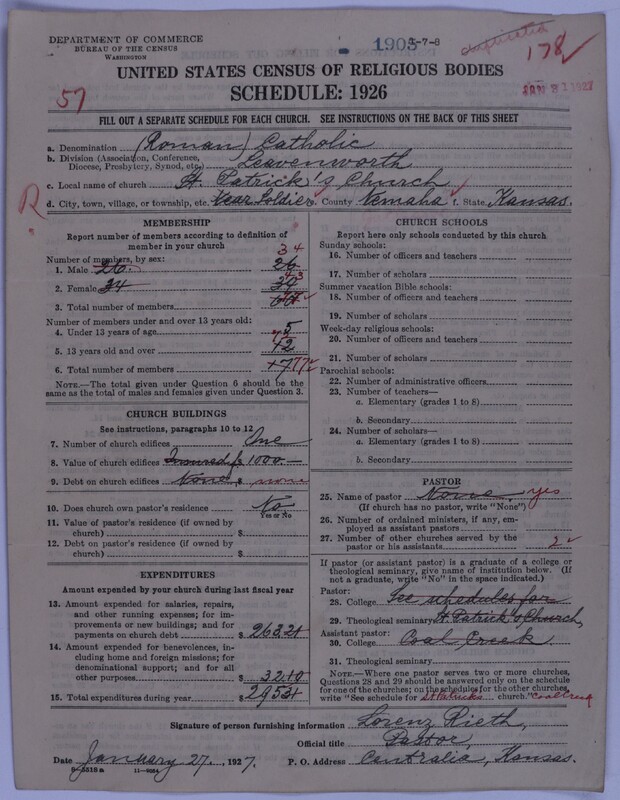 DEPARTMENT OF COMMERCE
BUREAU OF THE CENSUS
WASHINGTON
1903 5-7-8
178
57
JAN 31 1927
UNITED STATES CENSUS OF RELIGIOUS BODIES
SCHEDULE: 1926
FILL OUT A SEPARATE SCHEDULE FOR EACH CHURCH. SEE INSTRUCTIONS ON THE BACK OF THIS SHEET
a. Denomination (Roman) Catholic
b. Division (Association, Conference, Diocese, Presbytery, Synod, etc.) Leavenworth
c. Local name of church St. Patrick's Church
R
d. City, town, village, or township, etc. Near Soldier e. County Nemaha f. State Kansas.
MEMBERSHIP
Report number of members according to definition of
member in your church
Number of members, by sex:
34
1. Male 26. 26
2. Female 34 34 43
3. Total number of members
Number of members under and over 13 years old:
4. Under 13 years of age 5
5. 13 years old and over 72
6. Total number of members 77
NOTE.—The total given under Question 6 should be
same as the total of males and females given under Question 3.
CHURCH BUILDINGS
See instructions, paragraphs 10 to 12
7. Number of church edifices One
8. Value of church edifices Insured for $ 1000.—
9. Debt on church edifices None $ none
10. Does church own pastor's residence? No
Yes or No
11. Value of pastor's residence (if owned by
church) $
12. Debt on pastor's residence (if owned by
church) $
EXPENDITURES
Amount expended by your church during last fiscal year
13. Amount expended for salaries, repairs,
and other running expenses; for im-
provements or new buildings; and for
payments on church debt $ 263.21
14. Amount expended for benevolences, in-
cluding home and foreign missions; for
denominational support; and for all
other purposes $ 32.10
15. Total expenditures during year $ 295.31
CHURCH SCHOOLS
Report here only schools conducted by this church
Sunday schools:
16. Number of officers and teachers
17. Number of scholars
Summer vacation Bible schools:
18. Number of officers and teachers
19. Number of scholars
Week-day religious schools:
20. Number of officers and teachers
21. Number of scholars
Parochial schools:
22. Number of administrative officers
23. Number of teachers—
a. Elementary (grades 1 to 8)
b. Secondary
24. Number of scholars—
a. Elementary (grades 1 to 8)
b. Secondary
PASTOR
25. Name of pastor None. yes
(If church has no pastor, write "None")
26. Number of ordained ministers, if any, em-
ployed as assistant pastors
27. Number of other churches served by the
pastor or his assistants 2
If pastor (or assistant pastor) is a graduate of a college or
theological seminary, give name of institution below. (If
not a graduate, write "No" in the space indicated.)
Pastor:
28. College See schedules for
29. Theological seminary St. Patrick's Church,
Assistant pastor:
30. College Coal Creek
31. Theological seminary
NOTE.—Where one pastor serves two or more churches,
Questions 28 and 29 should be answered only on the schedule
for one of the churches; on the schedules for the other churches,
write "See schedule for St Patricks church." Coal Creek
Signature of person furnishing information Lorenz Rieth
Official title Pastor,
Date January 27., 1927. P. O. Address Centralia, Kansas.
8-5518 a 11-9054